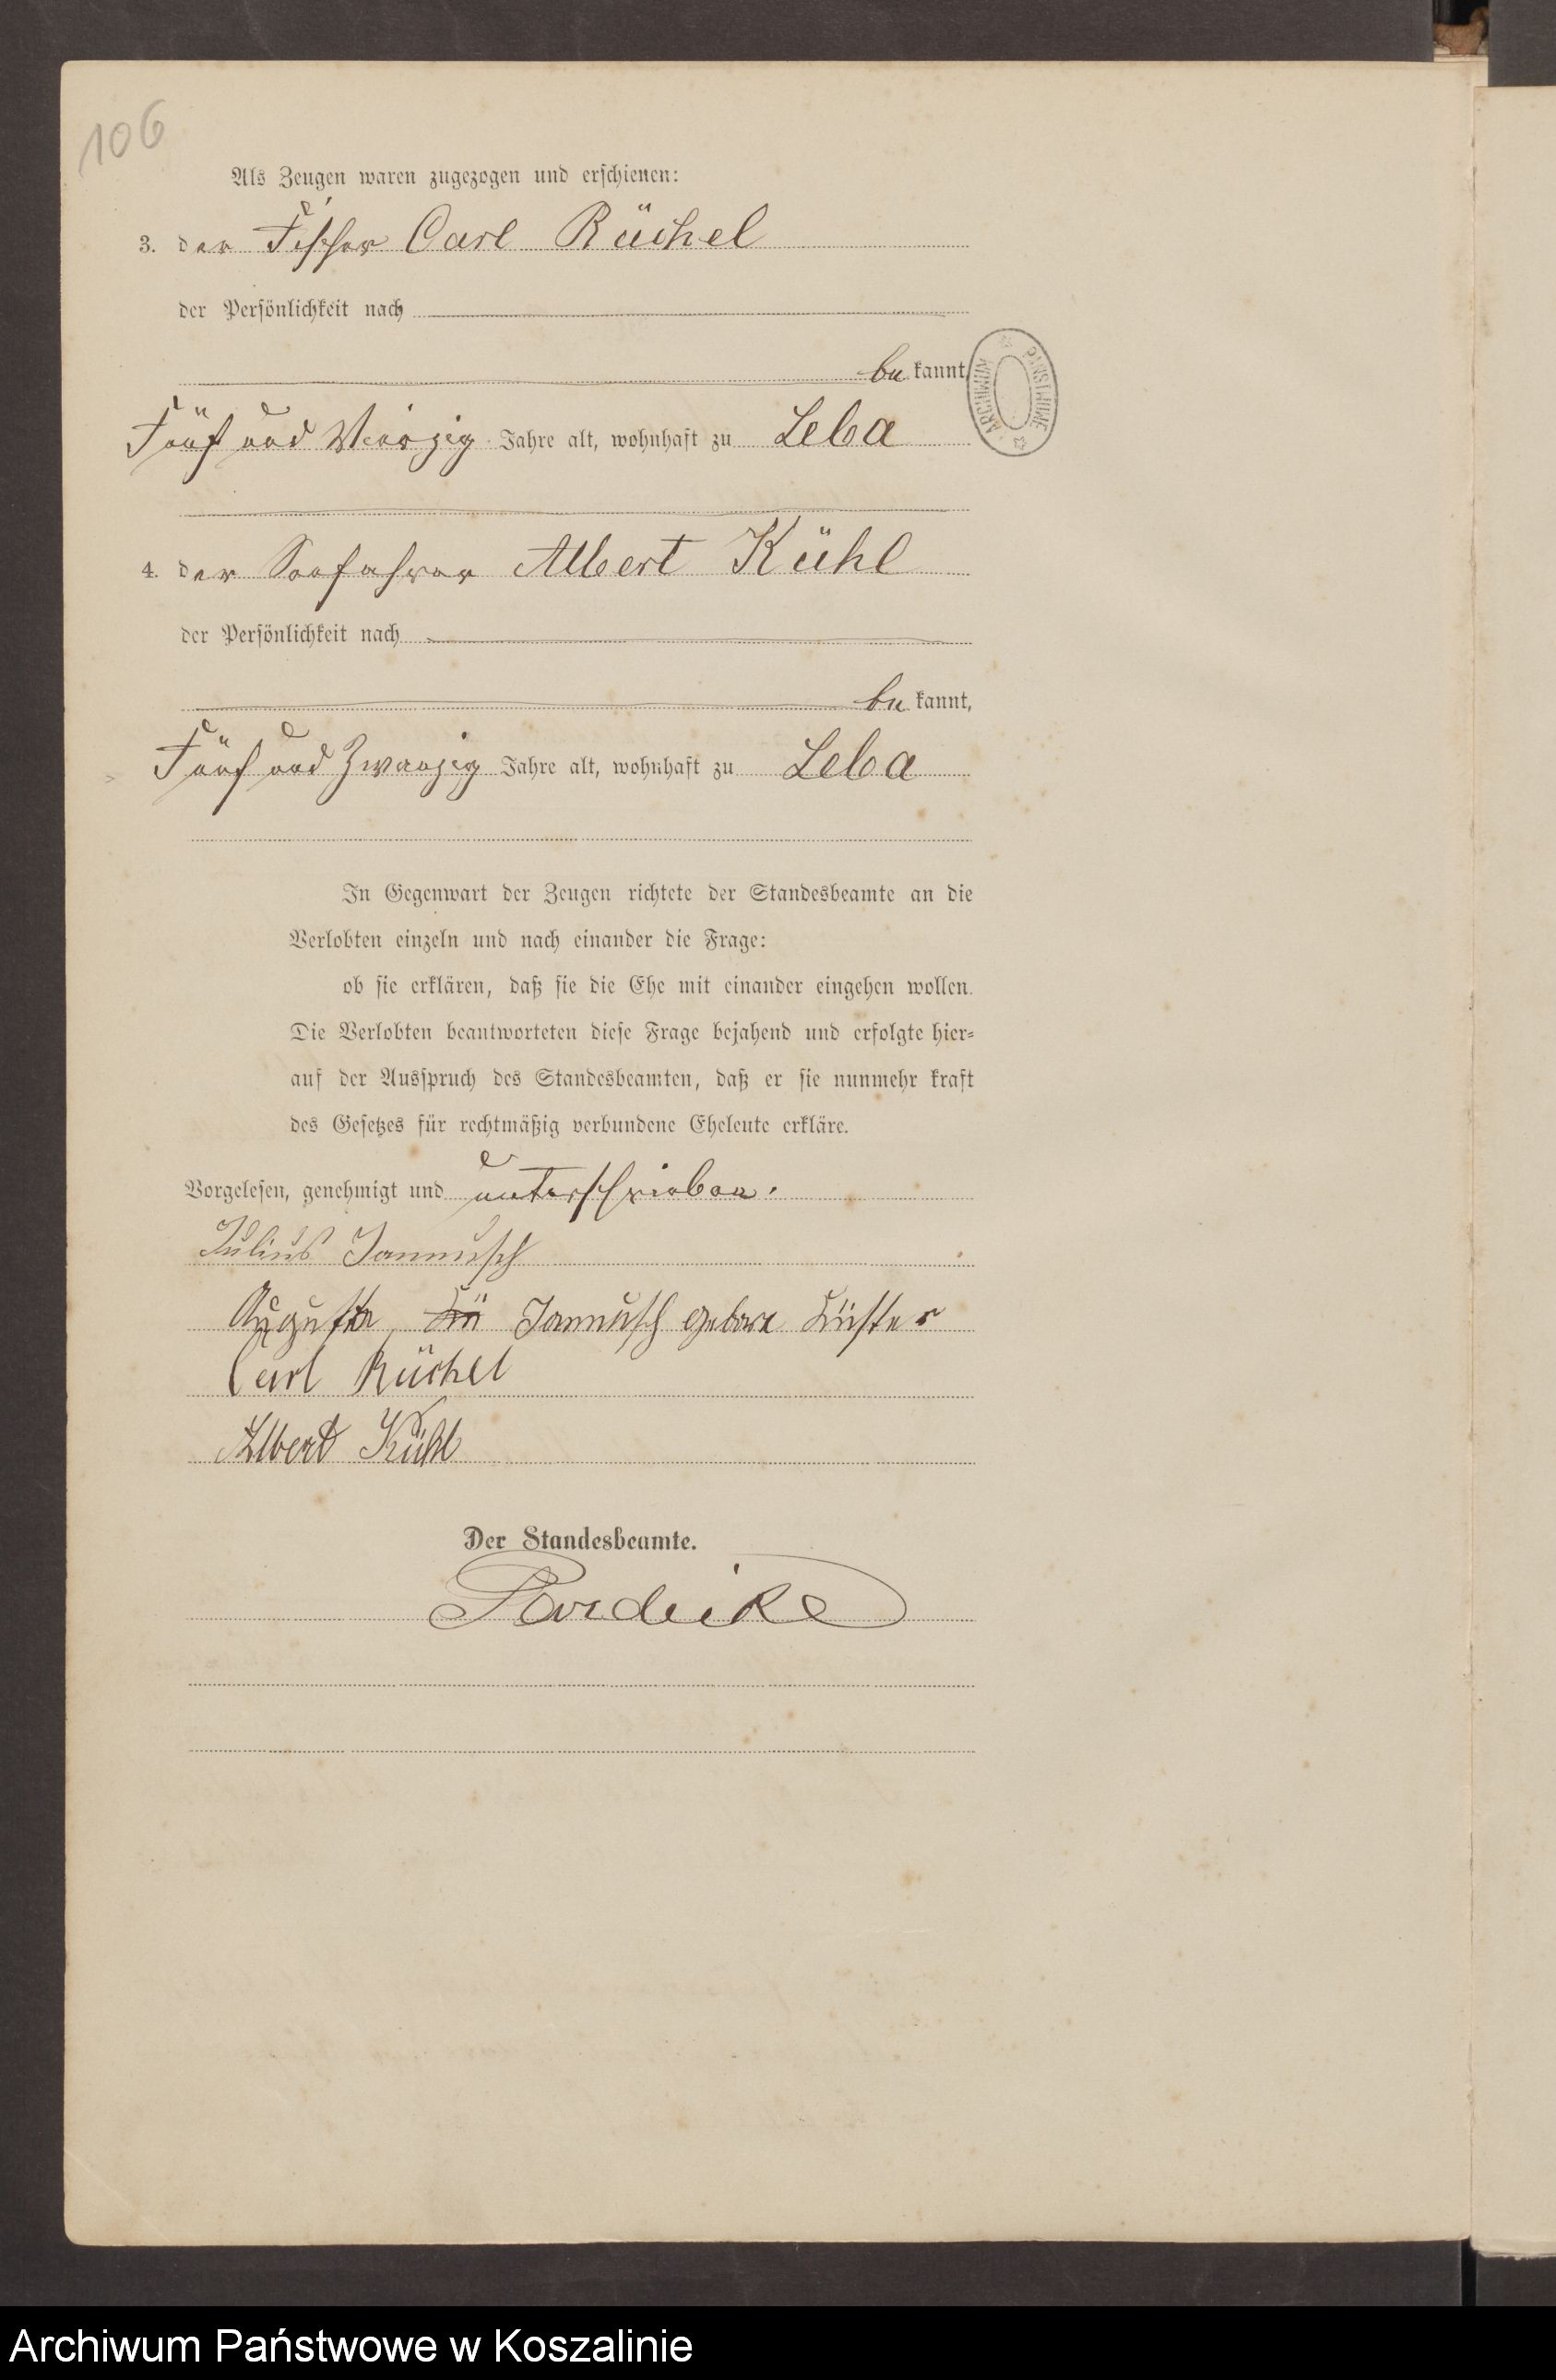 106
Als Zeugen waren zugezogen und erschienen:
3. der Fischer Carl Rüchel
der Persönlichkeit nach
bekannt,
Fünf und Vierzig Jahre alt, wohnhaft zu Leba
4. der Seefahrer Albert Kühl
der Persönlichkeit nach
bekannt,
Fünf und Zwanzig Jahre alt, wohnhaft zu Leba
In Gegenwart der Zeugen richtete der Standesbeamte an die
Verlobten einzeln und nach einander die Frage:
ob sie erklären, daß sie die Ehe mit einander eingehen wollen.
Die Verlobten beantworteten diese Frage bejahend und erfolgte hier-
auf der Ausspruch des Standesbeamten, daß er sie nunmehr kraft
des Gesetzes für rechtmäßig verbundene Eheleute erkläre.
Vorgelesen, genehmigt und unterschrieben.
Julius Jannusch
Auguste Kü Jannusch gebore Küster
Carl Rüchel
Albert Kühl
Der Standesbeamte.
ARCHIWUM PAŃSTWOWE
Archiwum Państwowe w Koszalinie